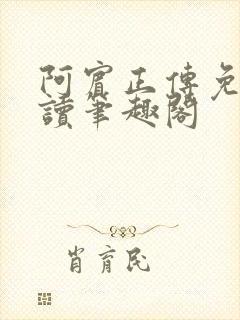 阿賓正傳免
讀筆趣閣
肖育民